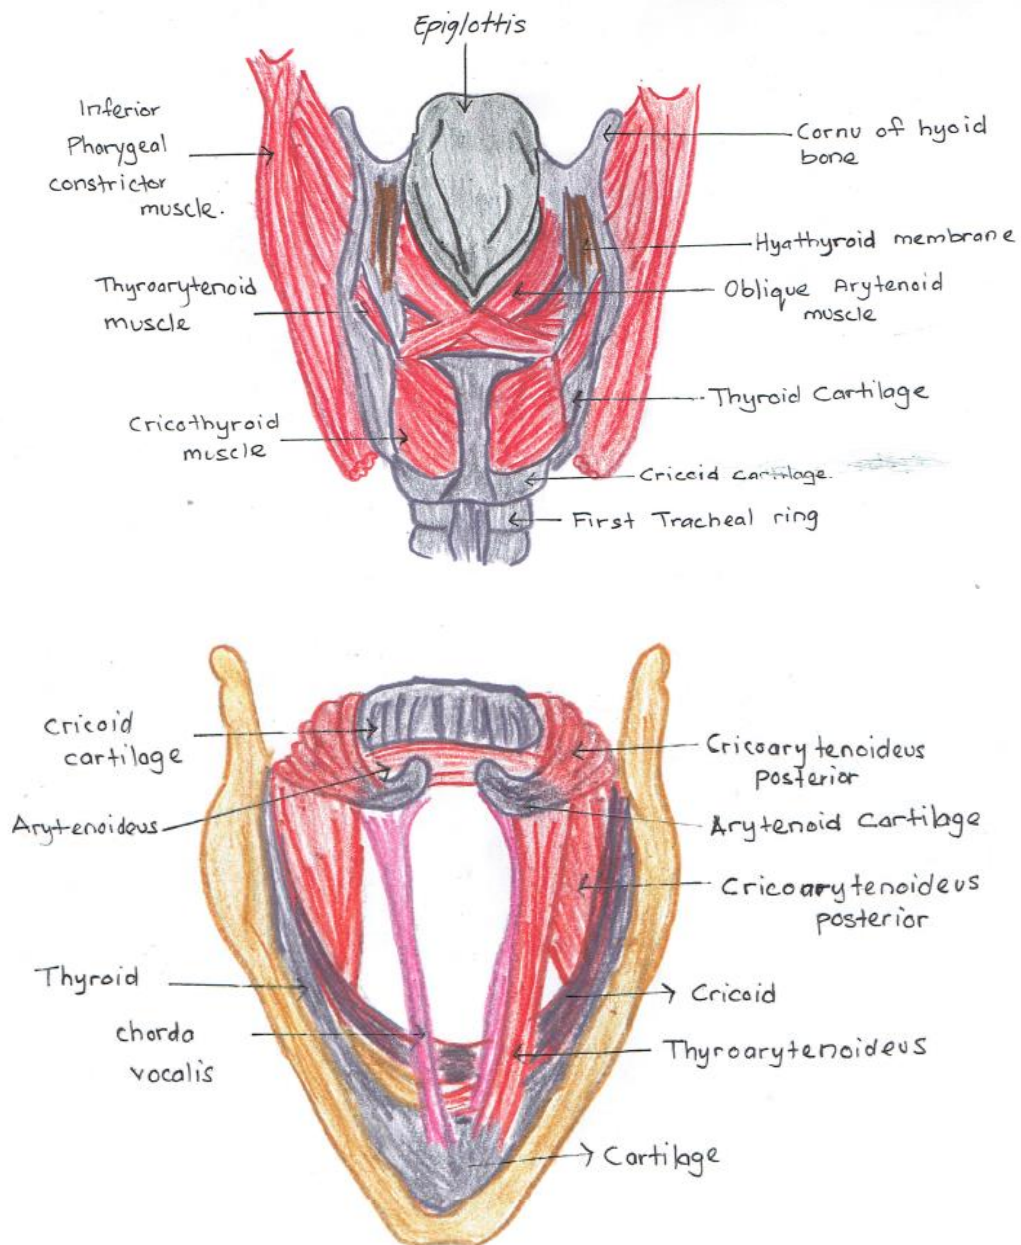 Epiglottis
Inferior
Pharygeal
constrictor
muscle.
Cornu of hyoid
bone
Hyathyroid membrane
Thyroarytenoid
muscle
Oblique Arytenoid
muscle
Thyroid Cartilage
Cricothyroid
muscle
Cricoid cartilage.
First Tracheal ring
Cricoid
cartilage
Cricoarytenoideus
posterior
Arytenoideus
Arytenoid Cartilage
Cricoarytenoideus
posterior
Thyroid
Cricoid
chorda
vocalis
Thyroarytenoideus
Cartilage